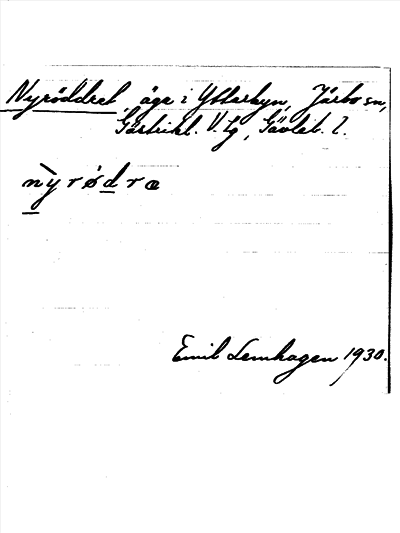 Nyröddret, äga i Ytterbyn, Järbo sn,
Gästrikl. V. tg, Gävleb. l.
nỳrödra
Emil Lemhagen 1930.